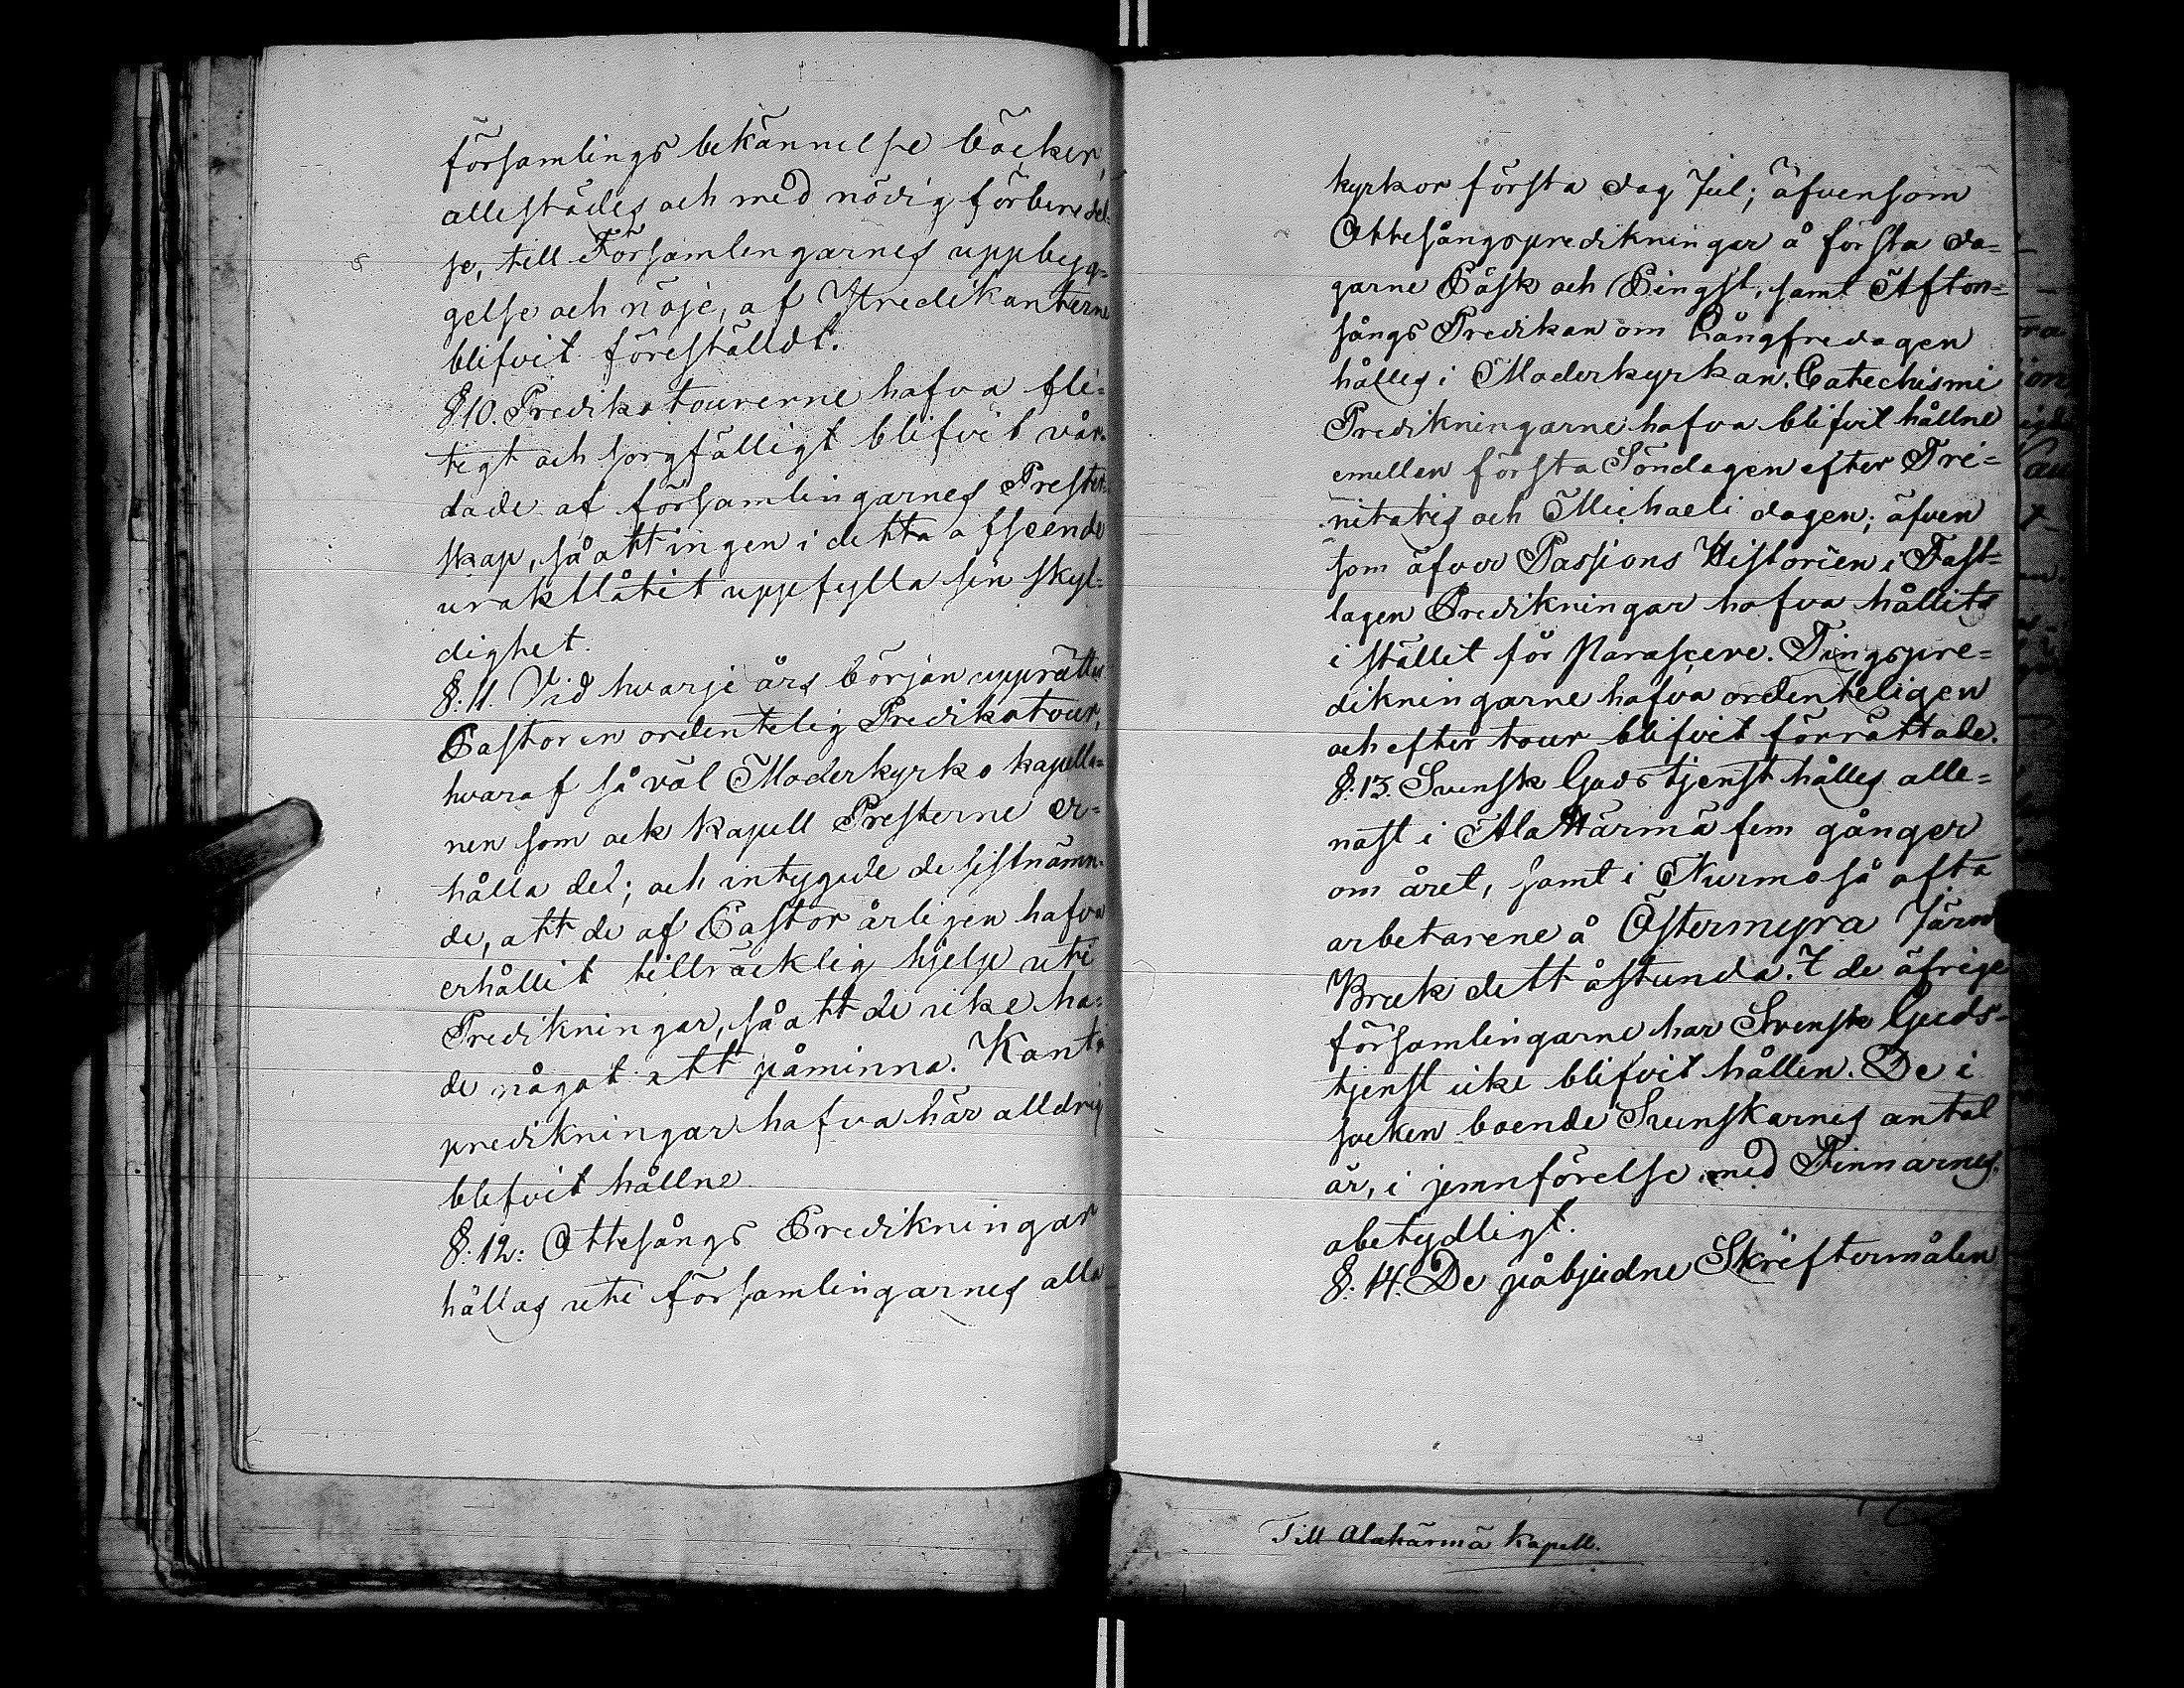 församlings bekännelse böcker,
allestädes och med nödig förberedel-
se, till Församlingarnes uppbyg-
gelse och nöje, af Predikanterne
blifvit föreställdt.
§10. Predikotourerne hafva fli-
tigt och sorgfälligt blifvit vår-
dade af församlingarnes Prester-
skap, så att ingen i detta afseende
uraktlåtit uppfylla sin skyl-
dighet.
§:11. Vid hvarje års början upprättar
Pastor en ordentelig Predikotour,
hvaraf så väl Moderkyrko kapella-
nen som ock kapell Presterne er-
hålla del; och intygade de sistnämn-
de, att de af Pastor årligen hafva
erhållit tillräcklig hjelp uti
Predikningar, så att de icke ha-
de något att påminna. Kant
predikningar hafva här alldrig
blifvit hållne
§:12: Ottesångs Predikningar
hållas uti församlingarnes alla
kyrkor första dag Jul; äfvensom
Ottesångspredikningar å första da-
garne Påsk och Pingst, samt Afton-
sångs Predikan om Långfredagen
hålles i Moderkyrkan. Catechismi
Predikningarne hafva blifvit hållne
emellan första Söndagen efter Tri-
nitatis och Michaeli dagen; äfven
som öfver Passions Historien i Fast-
lagen Predikningar hafva hållits
i stället för Parasceve. Tingspre-
dikningarne hafva ordenteligen
och efter tour blifvit förrättade.
§:13. Svensk Gudstjenst hålles alle-
nast i Alahärmä fem gånger
om året, samt i Nurmo så ofta
arbetarene å Östermyra Järn
Bruk dett åstunda. I de öfrige
församlingarne har Svensk Guds-
tjenst icke blifvit hållen. De i
socken boende Svenskarnes antal
är, i jemnförelse med Finnarnes,
obetydligt.
§:14. De påbjudne Skriftermålen
Till Alahärmä Kapell.